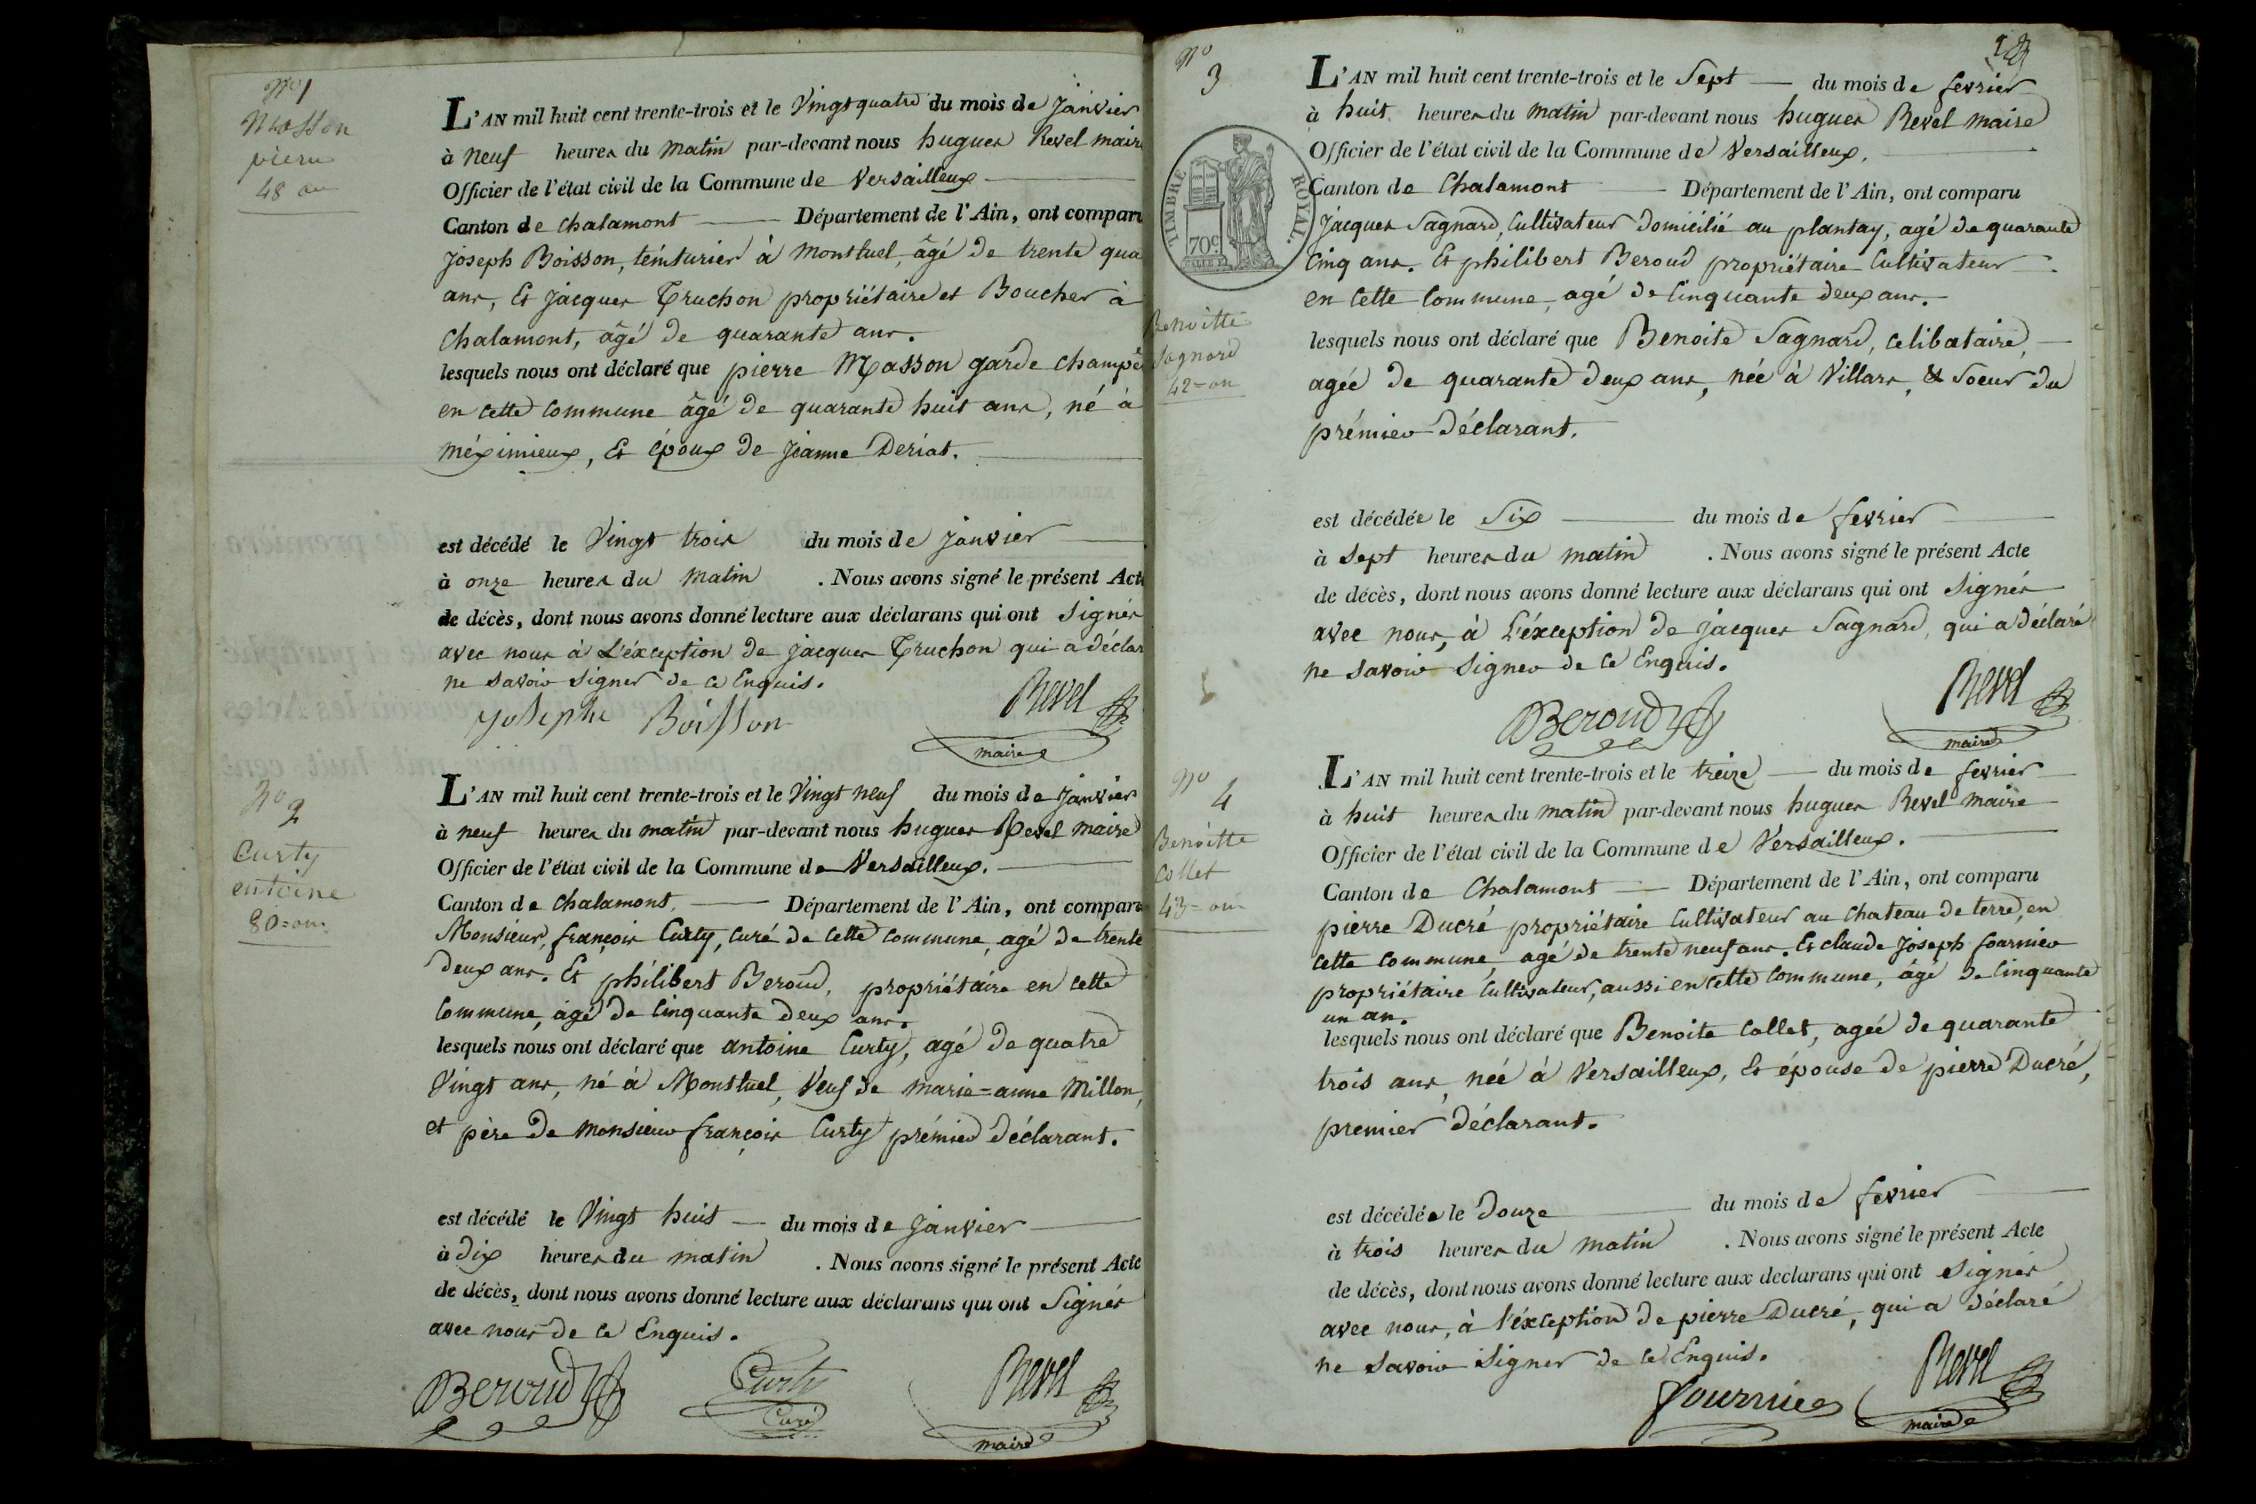 No 1
Masson
pierre
48 an
L'AN mil huit cent trente-trois et le Vingt quatre du mois de janvier
à neuf heures du matin par-devant nous hugues Revel maire
Officier de l'état civil de la Commune de Versailleux
Canton de chalamont Département de l'Ain, ont comparu
joseph Boisson, teinturier à Montluel, âgé de trente qua
ans, Et jacques Truchon propriétaire et Boucher à
Chalamont, âgé de quarante ans.
lesquels nous ont déclaré que pierre Masson garde champê
en cette commune âgé de quarante huit ans, né à
méximieux, Et époux de jeanne Deriat.
est décédé le Vingt trois du mois de janvier
à onze heures du matin . Nous avons signé le présent Acte
de décès, dont nous avons donné lecture aux déclarans qui ont signés
avec nous à L'éxception de jacques Truchon qui a déclar
ne savoir signer de ce Enquis.
josephe Boisson Revel
maire
No 2
Curty
entoine
80=an
L'AN mil huit cent trente-trois et le Vingt neuf du mois de janvier
à neuf heures du matin par-devant nous hugues Revel maire
Officier de l'état civil de la Commune de Versailleux.
Canton de chalamont. Département de l'Ain, ont comparu
Monsieur, françois Curty, curé de cette commune, agé de trente
deux ans. Et philibert Beroud, propriétaire en cette
Commune, agé de Cinquante deux ans.
lesquels nous ont déclaré que antoine Curty, agé de quatre
Vingt ans, né à Montluel, Veuf de marie=anne Millon,
et père de monsieur françois Curty prémier déclarant.
est décédé le Vingt huit du mois de janvier
à dix heures du matin . Nous avons signé le présent Acte
de décès, dont nous avons donné lecture aux déclarans qui ont signés
avec nous de ce Enquis.
Beroud Curty Revel
Curé maire
No 3
TIMBRE ROYAL.
70c
Benoitte
Sagnard
42=an
L'AN mil huit cent trente-trois et le sept du mois de fevrier
à huit heures du matin par-devant nous hugues Revel maire
Officier de l'état civil de la Commune de Versailleux.
Canton de Chalamont Département de l'Ain, ont comparu
jacques Sagnard, Cultivateur domicilié au plantay, agé de quarante
Cinq ans. Et philibert Beroud propriétaire Cultivateur
en cette Commune, agé de Cinquante deux ans.
lesquels nous ont déclaré que Benoite Sagnard, celibataire,
agée de quarante deux ans, née à Villars, & soeur du
prémier déclarant.
est décédée le six du mois de fevrier
à sept heures du matin . Nous avons signé le présent Acte
de décès, dont nous avons donné lecture aux déclarans qui ont signés
avec nous, à L'éxception de jacques Sagnard, qui a déclaré
ne savoir signer de ce Enquis.
Beroud Revel
maire
No 4
Benoitte
Collet
43=an
L'AN mil huit cent trente-trois et le treize du mois de fevrier
à huit heures du matin par-devant nous hugues Revel maire
Officier de l'état civil de la Commune de Versailleux.
Canton de Chalamont Département de l'Ain, ont comparu
pierre Ducré propriétaire Cultivateur au chateau de terre, en
cette commune, agé de trente neuf ans. Et claude joseph fournier
propriétaire Cultivateur, aussi en cette commune, âgé de Cinquante
un an.
lesquels nous ont déclaré que Benoite Collet, agée de quarante
trois ans, née à Versailleux, Et épouse de pierre Ducré,
premier déclarant.
est décédée le douze du mois de fevrier
à trois heures du matin . Nous avons signé le présent Acte
de décès, dont nous avons donné lecture aux declarans qui ont signés
avec nous, à l'éxception de pierre Ducré, qui a déclaré
ne savoir signer de ce Enquis.
fournier Revel
maire